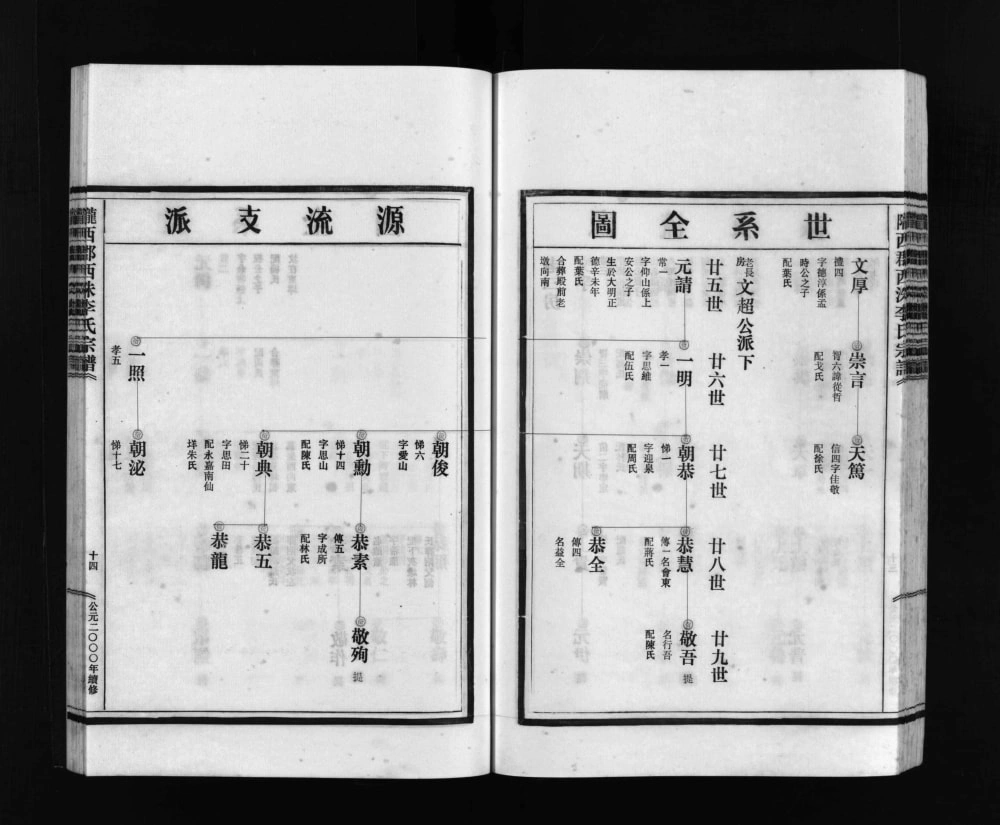 世系全圖
文厚
禮四
字德淳係孟
時公之子
配葉氏
崇言
胃六諱從哲
配戈氏
天篤
信四字佳敬
配徐氏
老長房
文超公派下
廿五世
廿六世
廿七世
廿八世
廿九世
元請
常一
字仰山係上
安公之子
生於大明正
德辛未年
配葉氏
合葬殿前老
墩向南
一明
孝一
字思維
配伍氏
朝恭
悌一
字迎泉
配周氏
恭慧
傳一名會東
配蔣氏
敬吾
名行吾
配陳氏
提
恭全
傳四
名益全
源流支派
朝俊
悌六
字愛山
朝勳
悌十四
字思山
配陳氏
恭素
傳五
字成所
配林氏
敬殉
提
朝典
悌二十
字思田
配永嘉南仙
垟朱氏
恭五
恭龍
一照
孝五
朝泌
悌十七
隴西郡西洙李氏宗譜
十四
公元二〇〇〇年續修